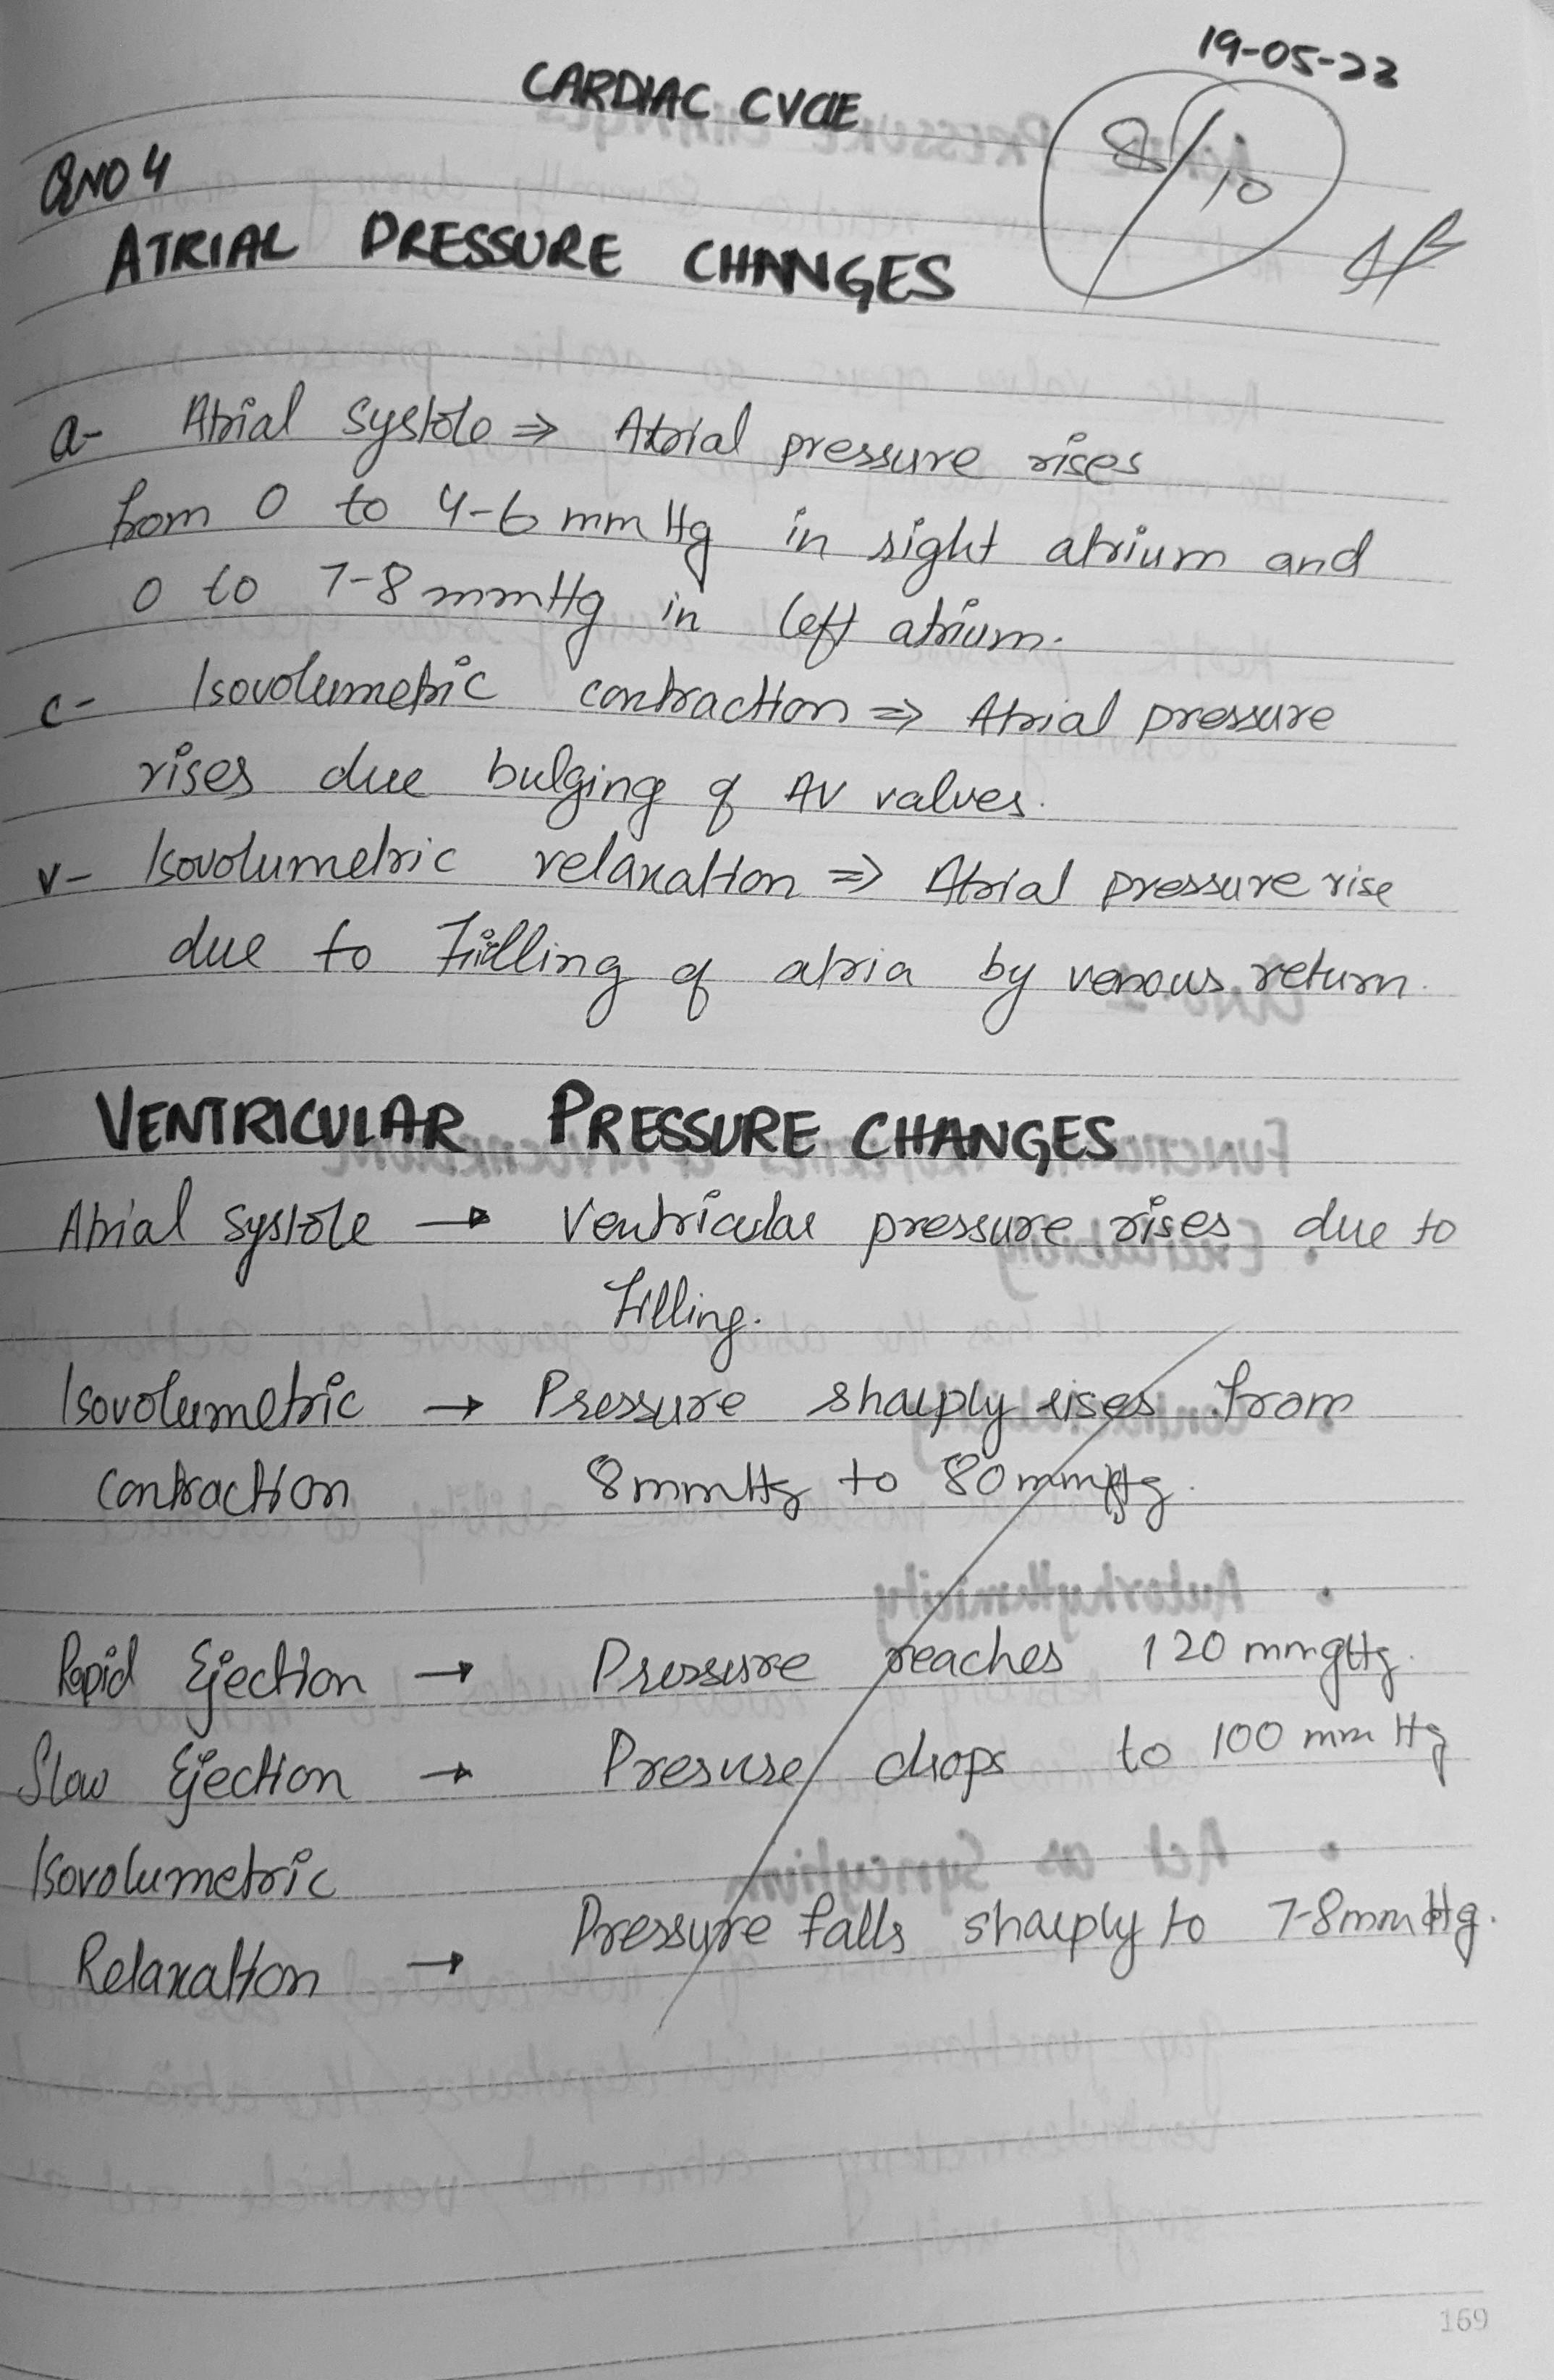 19-05-22
CARDIAC CYCLE
8/10
QNO 4
ATRIAL PRESSURE CHANGES
a- Atrial systole ⇒ Atrial pressure rises
from 0 to 4-6 mm Hg in right atrium and
0 to 7-8 mmHg in left atrium.
c- Isovolumetric contraction ⇒ Atrial pressure
rises due bulging of AV valves.
v- Isovolumetric relaxation ⇒ Atrial pressure rise
due to Filling of atria by venous return.
VENTRICULAR PRESSURE CHANGES
Atrial systole → Ventricular pressure rises due to
Filling.
Isovolumetric → Pressure sharply rises from
contraction 8mmHg to 80mmHg.
Rapid Ejection → Pressure reaches 120 mmgHg.
Slow Ejection → Presure drops to 100 mm Hg
Isovolumetric
Relaxation → Pressure falls sharply to 7-8mm Hg.
169